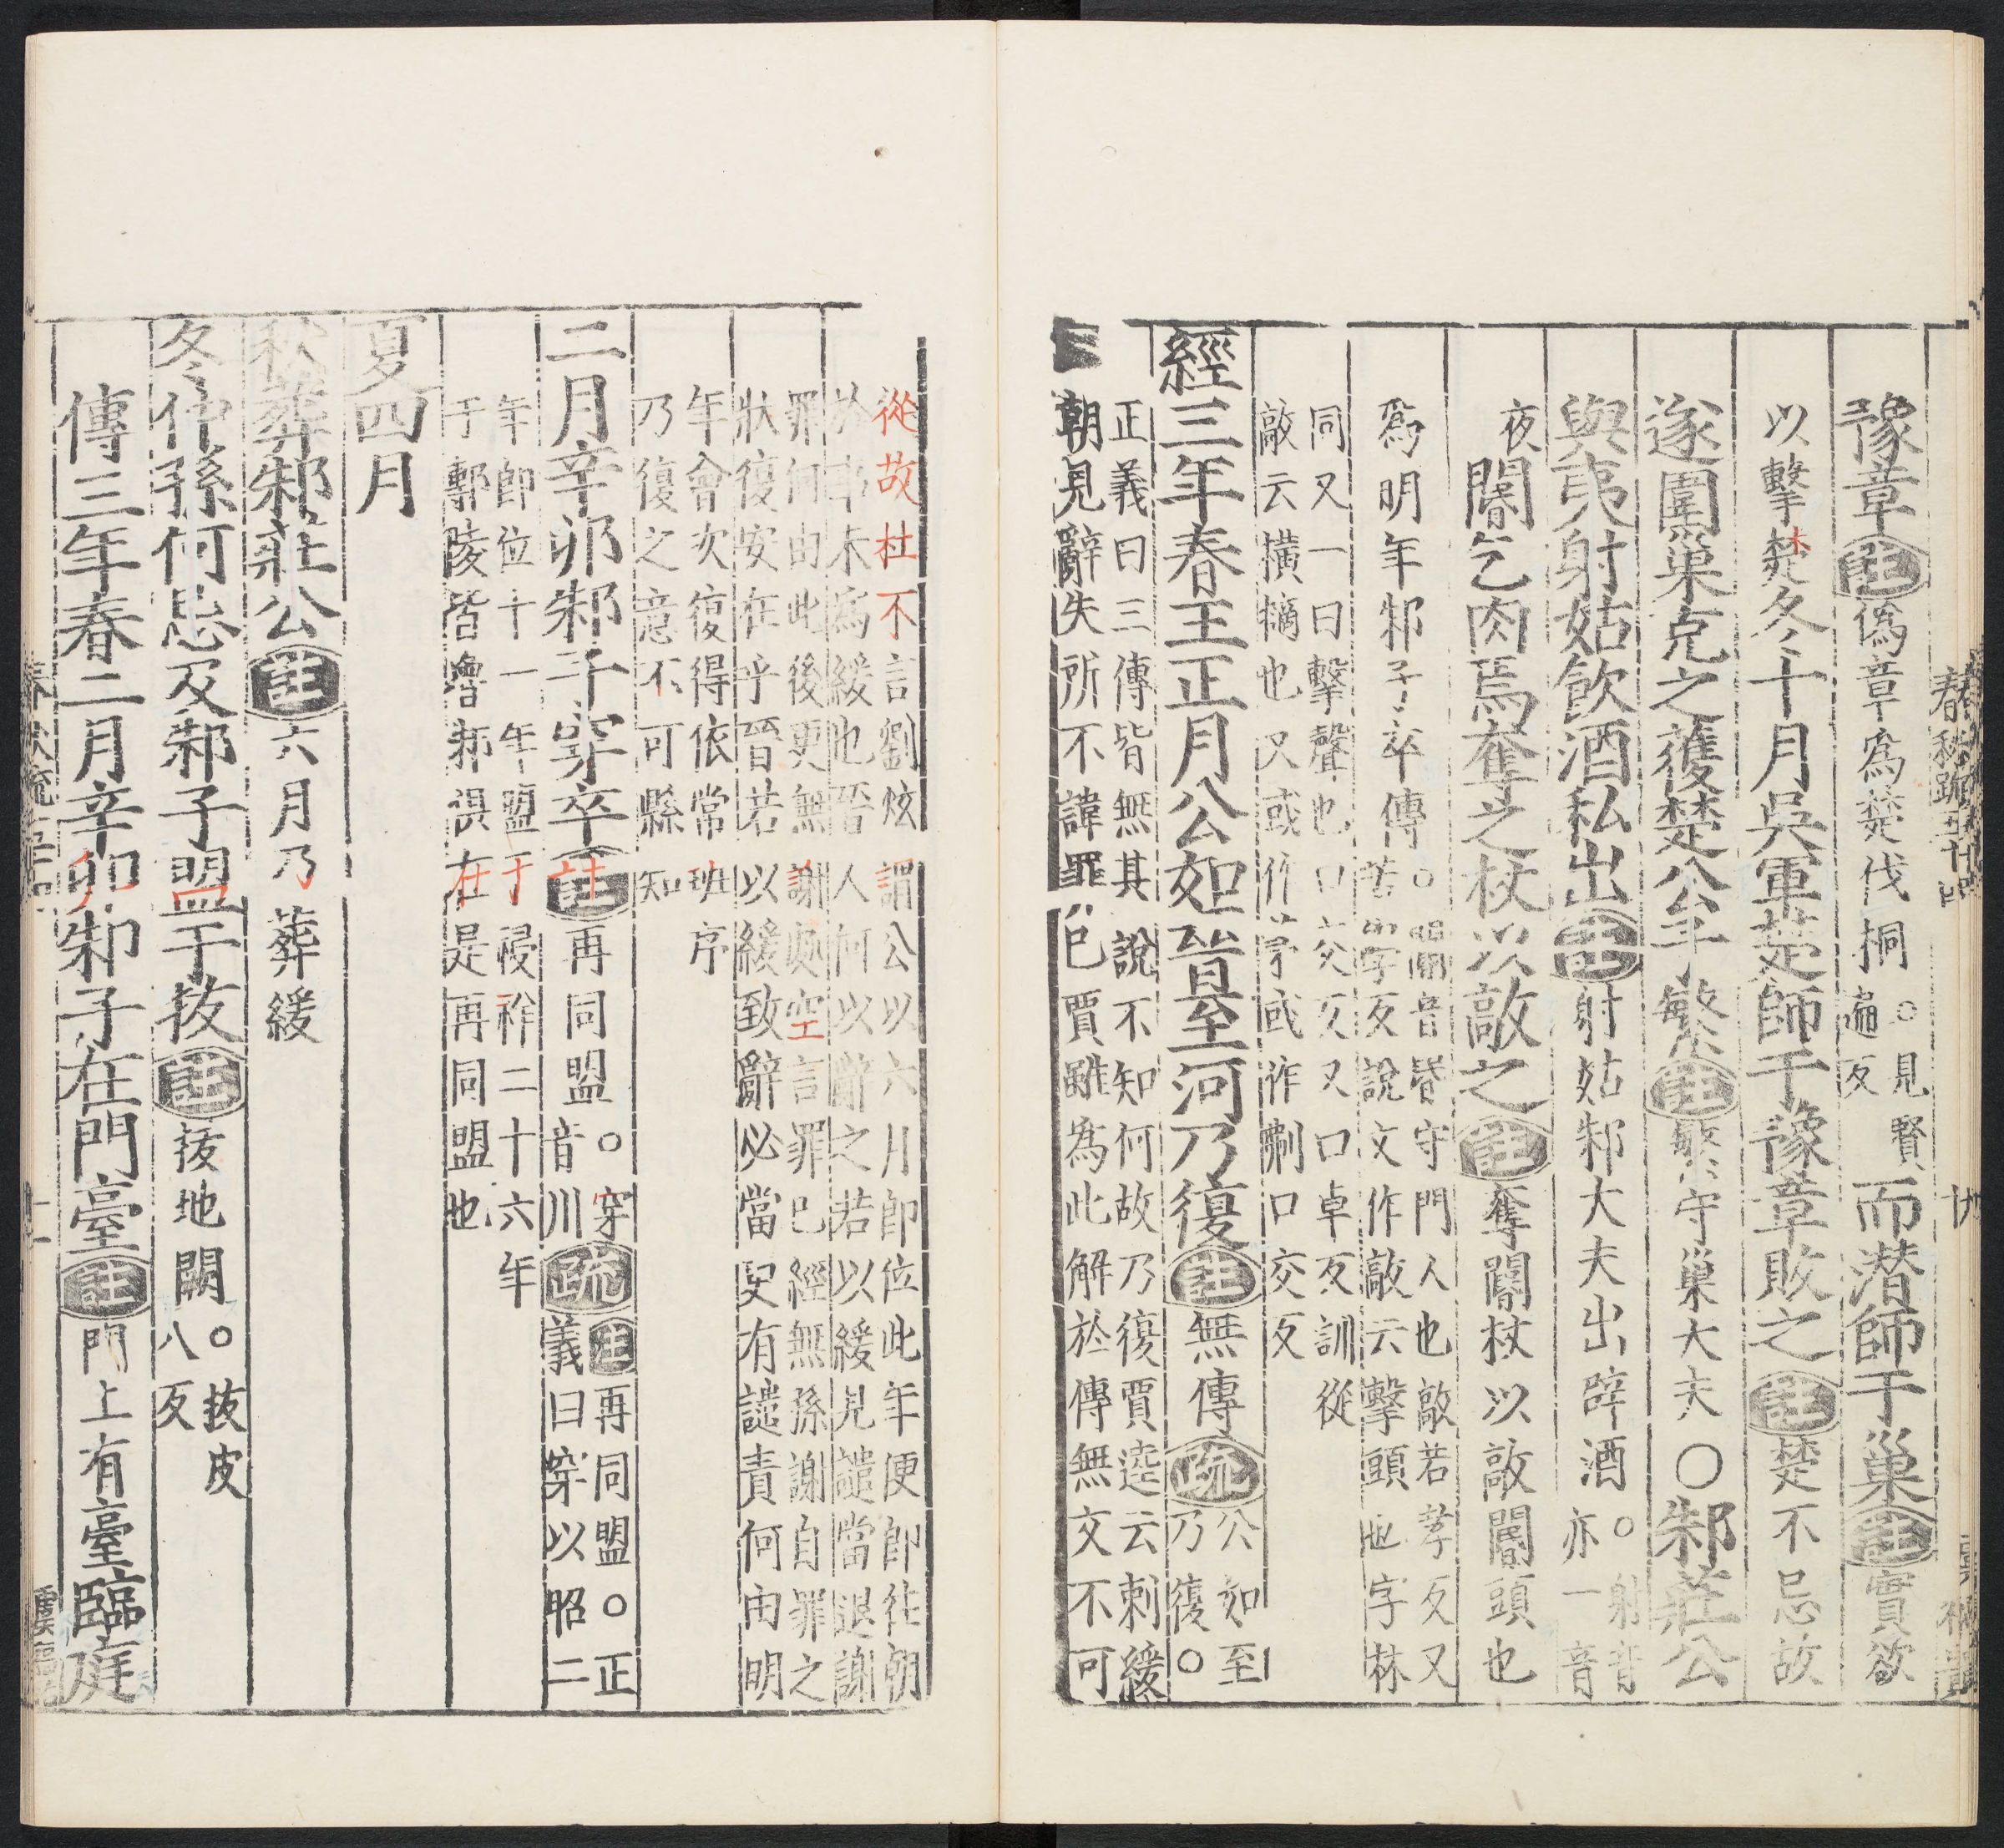 豫章註僞章爲楚伐桐○見賢遍反而潜師于巢註實欲
以擊楚冬十月吳軍楚師于豫章敗之註楚不忌故
遂圍巢克之獲楚公子繁註繁守巢大夫○邾莊公
與夷射姑飲酒私出註射姑邾大夫出辟酒○射音亦一音
夜閽乞肉焉奪之杖以敲之註奪閽杖以敲閽頭也
爲明年邾子卒傳○閽音昏守門人也敲若孝反又
苦學反說文作敲云擊頭也字林
同又一曰擊聲也口交反又口卓反訓從
敲云橫擿也又或作茅或作剻口交反
經三年春王正月公如晉至河乃復註無傳疏公如至乃復○
正義曰三傳皆無其說不知何故乃復賈逵云刺緩
朝見辭失所不諱罪已賈雖爲此解於傳無文不可
從故杜不言劉炫謂公以六月即位此年便即往朝
於事未爲緩也晉人何以辭之若以緩見譴當退謝
罪何由此後更無謝處空言罪已經無孫謝自罪之
狀復安在乎晉若以緩致辭必當更有譴責何由明
年會次復得依常班序
乃復之意不可縣知
二月辛卯邾子穿卒註再同盟○穿音川疏註再同盟○正
儀曰穿以昭二
年即位十一年盟于祲祥二十六年
于鄟陵皆魯邾俱在是再同盟也
夏四月
秋葬邾莊公註六月乃葬緩
冬仲孫何忌及邾子盟于拔註拔地闕○拔皮八反
傳三年春二月辛卯邾子在門臺註門上有臺臨庭